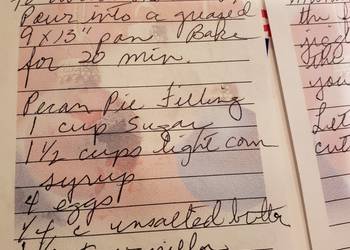 Pour into a greased
9 x 13" pan Bake
for 20 min.
Pecan Pie Filling
1 cup Sugar
1 1/2 cups light corn
syrup
4 eggs
1/4 c unsalted butter
the
you
Let